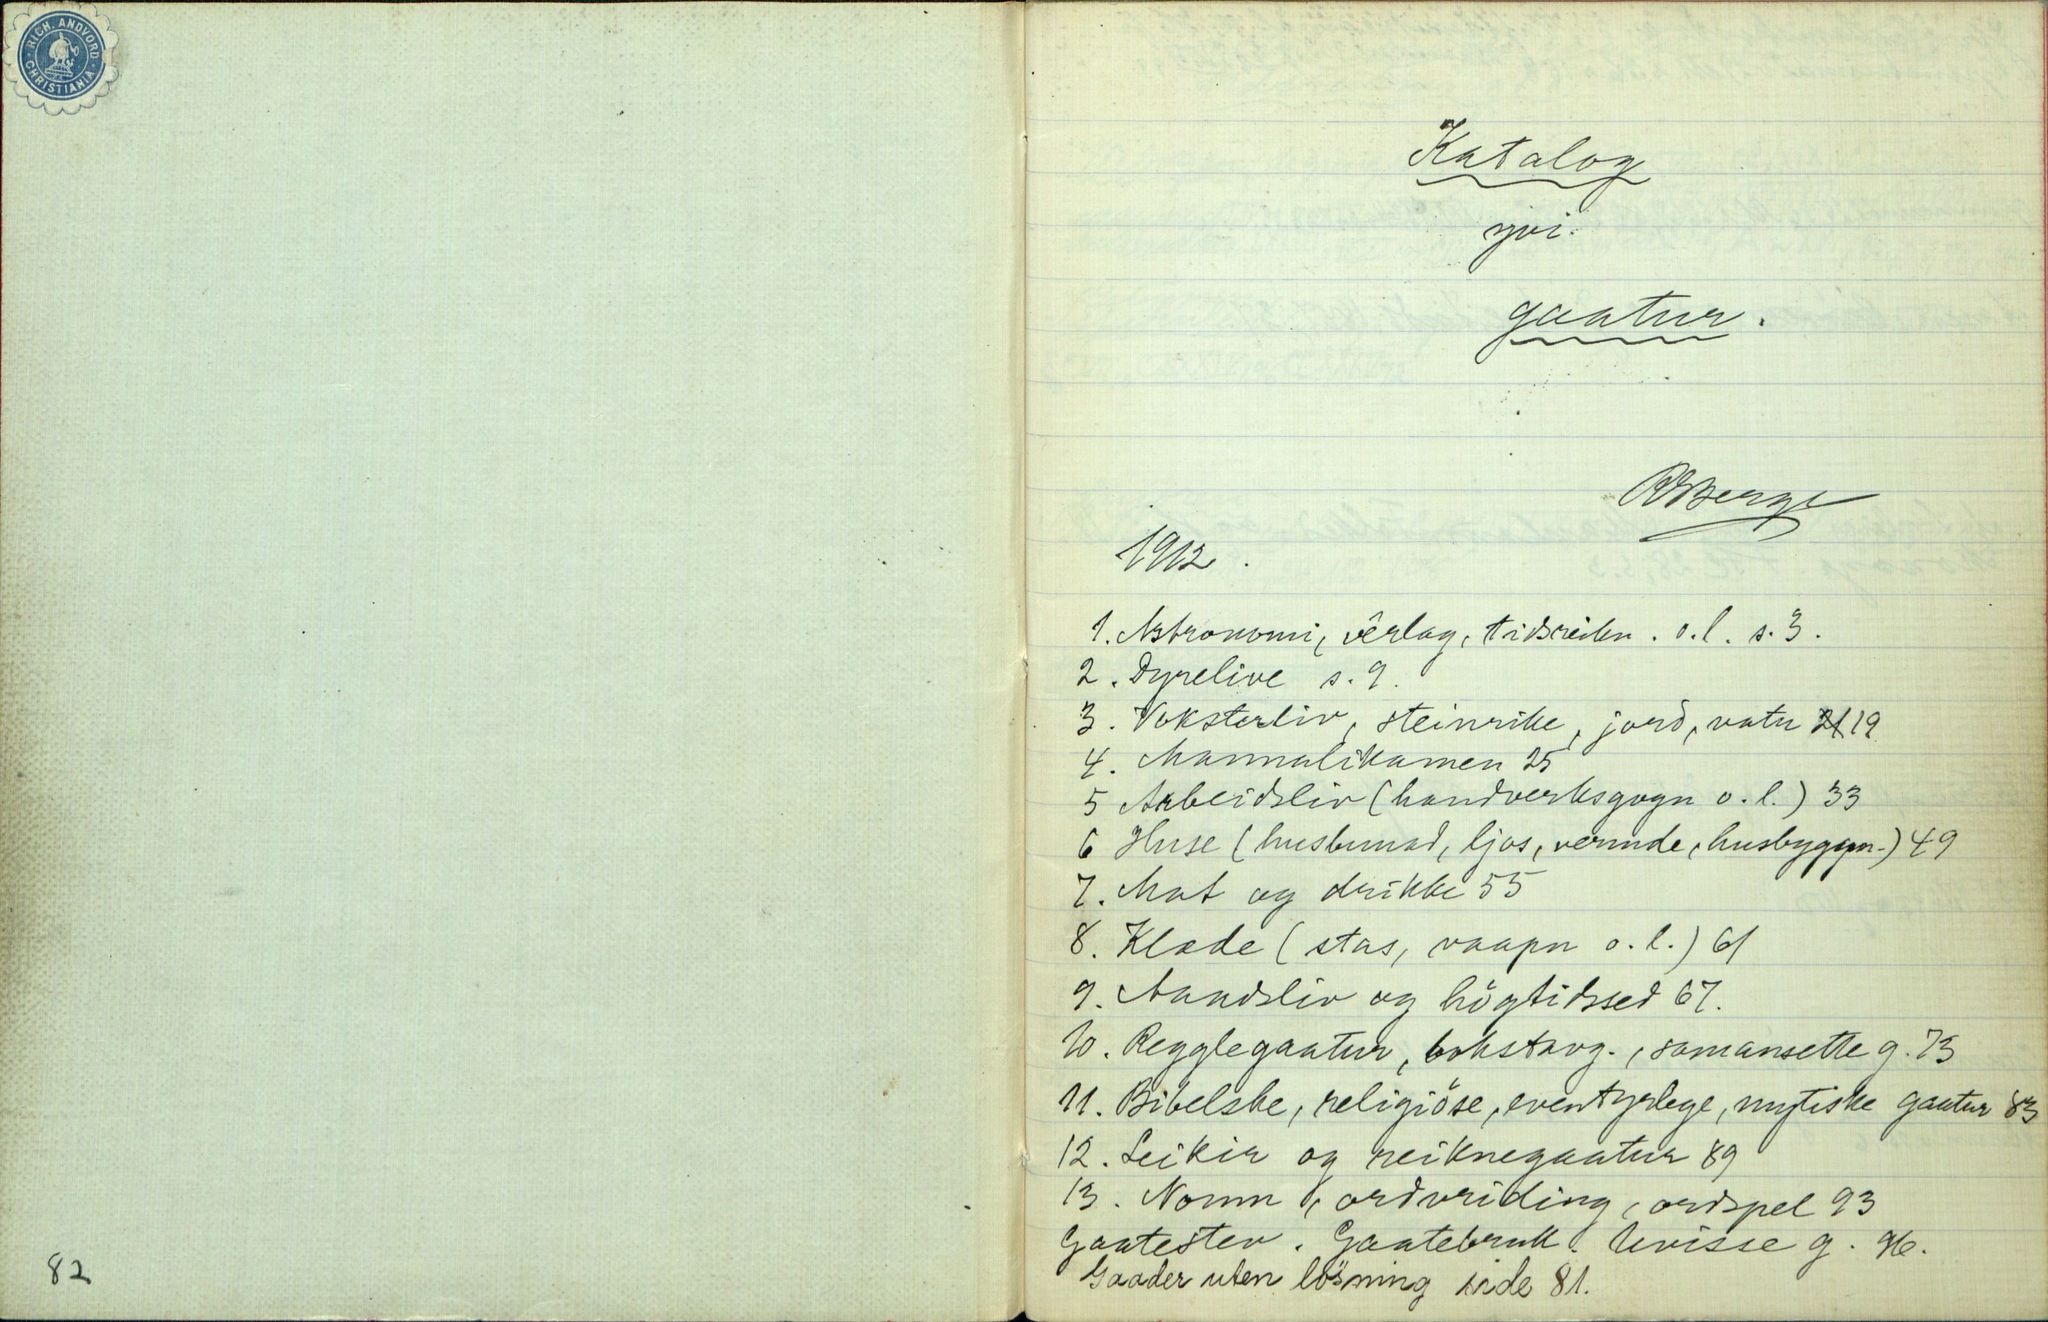 RICH. ANDVORD
CHRISTIANIA
82
Katalog
yvi
gaatur.
RBerge
1912.
1. Astronomi, vêrlag, tidsreikn. o.l. s. 3.
2. Dyrelive s. 9.
3. Voksterliv, steinrike, jord, vatn 21 19
4. Mannalikamen 25
5 Arbeidsliv (handverksgogn o.l.) 33
6 Huse (husbunad, ljos, vermde, husbyggjn.) 49
7. Mat og drikke 55
8. Klæde (stas, vaapn o.l.) 61
9. Aandsliv og högtidssed 67.
10. Regglegaatur, bokstavg., samansette g. 73
11. Bibelske, religiöse, eventyrlege, mytiske gaatur 83
12. Leikir og reiknegaatur 89
13. Nomn, ordvriding, ordspel 93
Gaatestev. Gaatebruk. Uvisse g. 96.
Gaader uten lösning side 81.